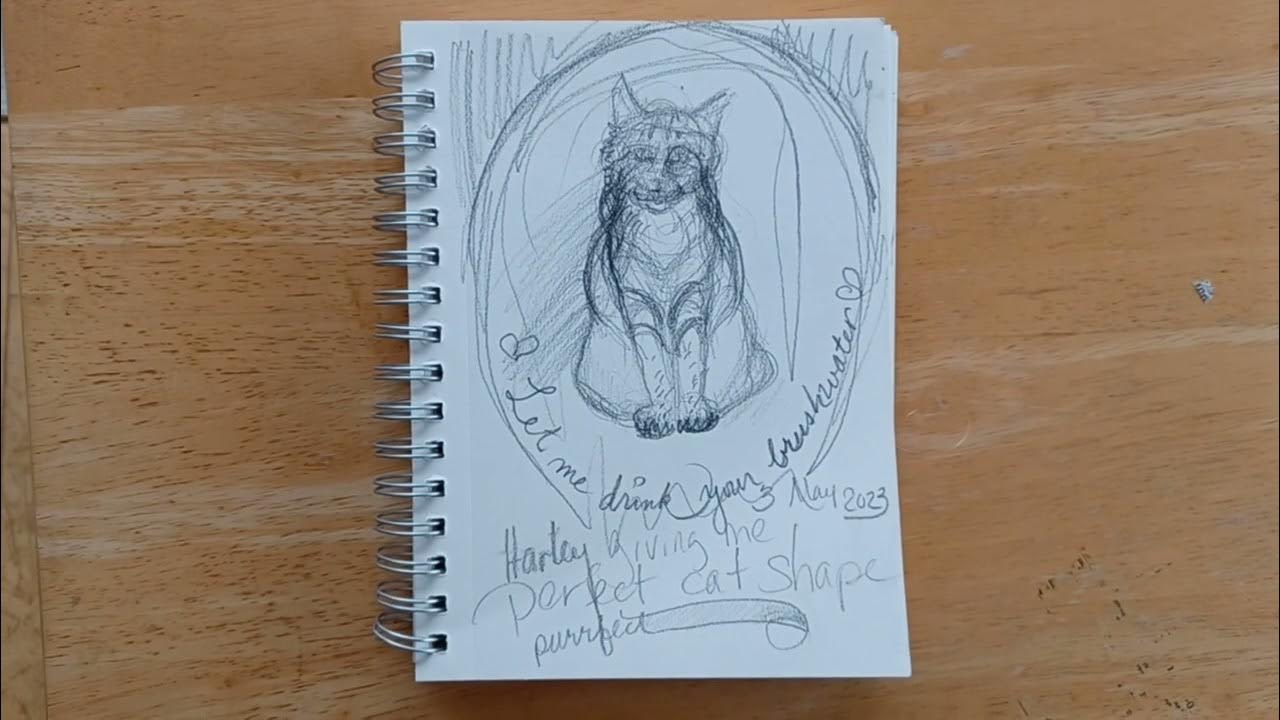 Let me drink your brushwater
3 May 2023
Harley giving me
perfect cat shape
purrfect